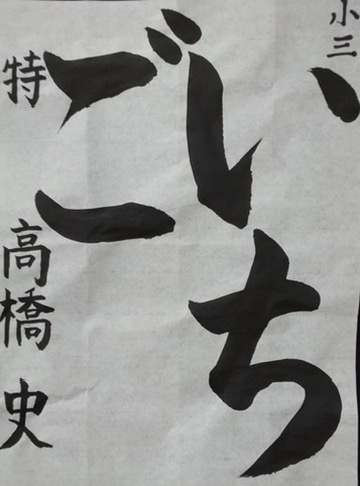 小三
いち
ご
特
高橋 史